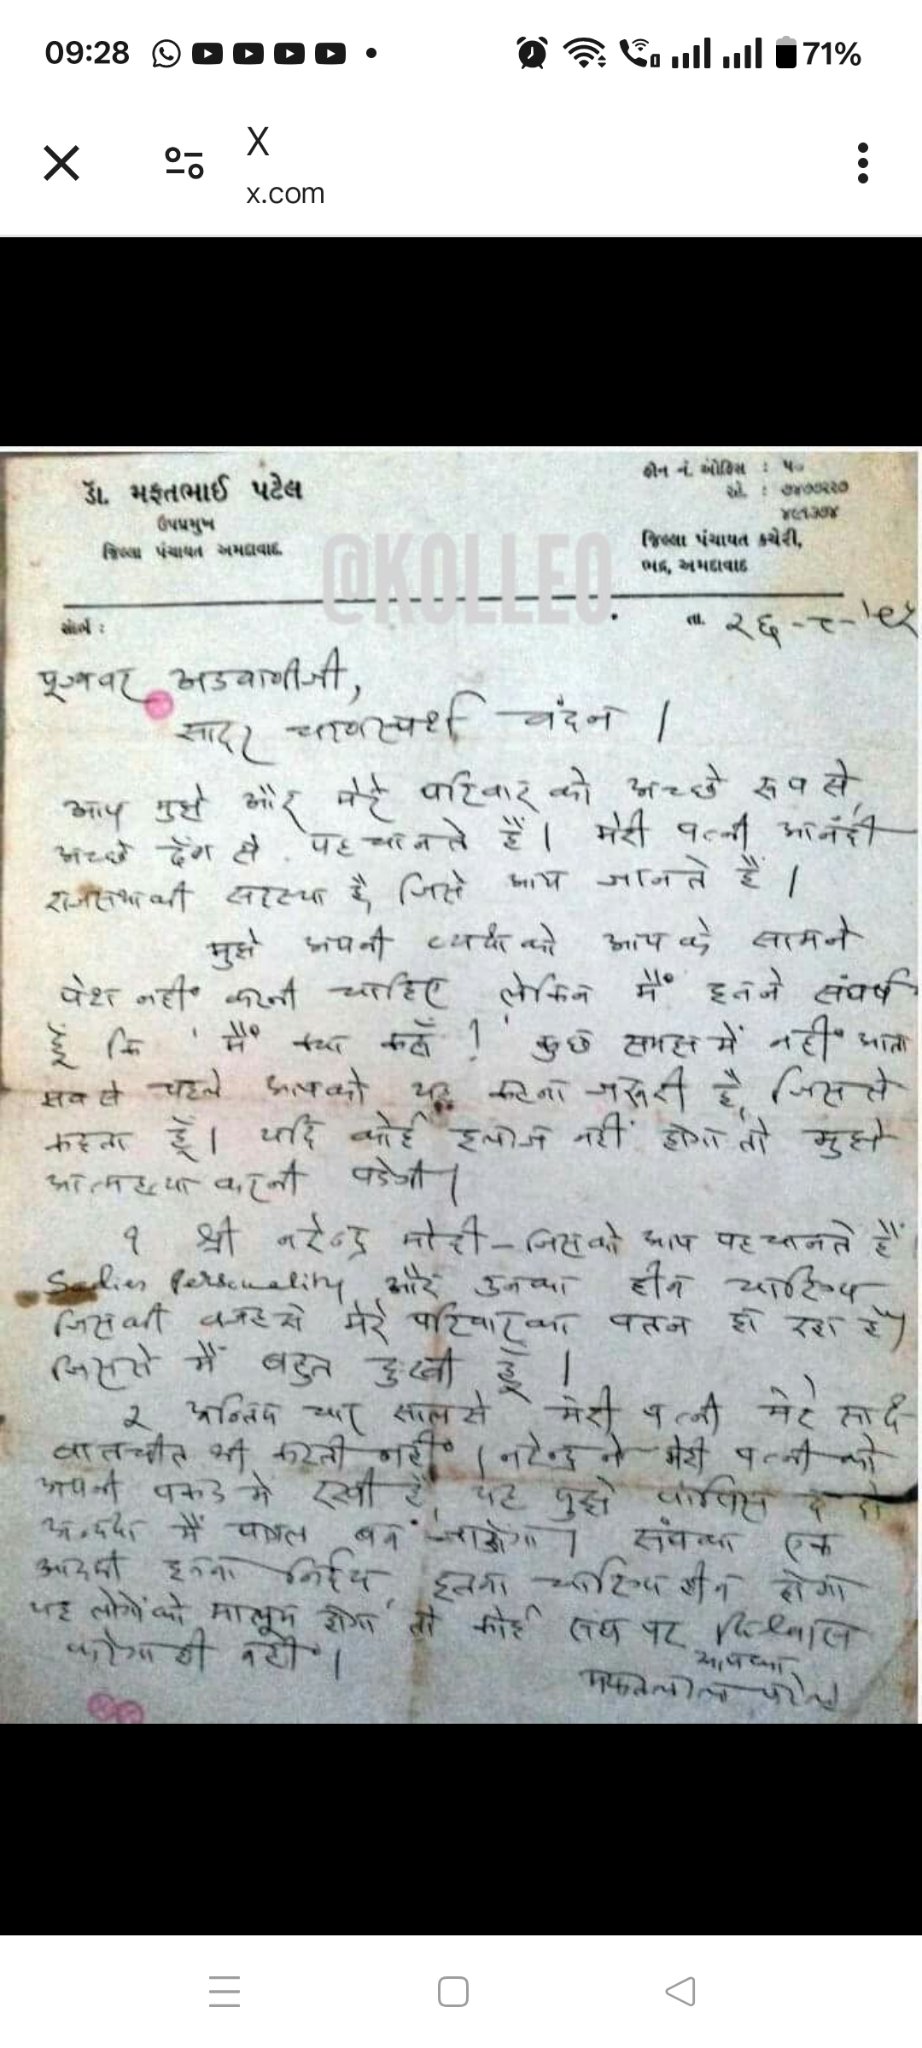 09:28
71%
X
x.com
ડૉ. મફતભાઈ પટેલ
ઉપપ્રમુખ
જિલ્લા પંચાયત અમદાવાદ
ફોન નં. ઓફિસ : ૫૦
જિલ્લા પંચાયત કચેરી,
ભદ્ર, અમદાવાદ
@KOLLEO
તા. ૨૬-૮-
पूज्यवर अडवाणीजी,
सादर चरणस्पर्श वंदन ।
आप मुझे और मेरे परिवार को अच्छे रूप से,
अच्छे ढंग से पहचानते हैं। मेरी पत्नी आनंदी
है, जिसे आप जानते हैं ।
मुझे अपनी व्यथा को आप के सामने
पेश नहीं करनी चाहिए लेकिन मैं इतने संघर्ष
हूँ कि मैं क्या करूँ ! कुछ समझ में नहीं आता
सब से पहले आपको यह कहना जरूरी है, जिस से
कहता हूँ। यदि कोई इलाज नहीं होगा तो मुझे
आत्महत्या करनी पडेगी।
१ श्री नरेन्द्र मोदी - जिसको आप पहचानते हैं
personality और उनका हीन चारित्र्य
जिसकी वजह से मेरे परिवार का पतन हो रहा है।
जिससे मैं बहुत दुःखी हूँ ।
२ अन्तिम चार साल से मेरी पत्नी मेरे साथ
बातचीत भी करती नहीं। नरेन्द्र ने मेरी पत्नी को
अपनी पकड में रखी है, यह मुझे वापिस दे दो
मैं पागल बन जाऊंगा। संघ का एक
आदमी इतना निर्दय, इतना चारित्र्य हीन होगा
यह लोगों को मालूम होगा तो कोई संघ पर विश्वास
करेगा ही नहीं।
आपका
मफतलाल पटेल